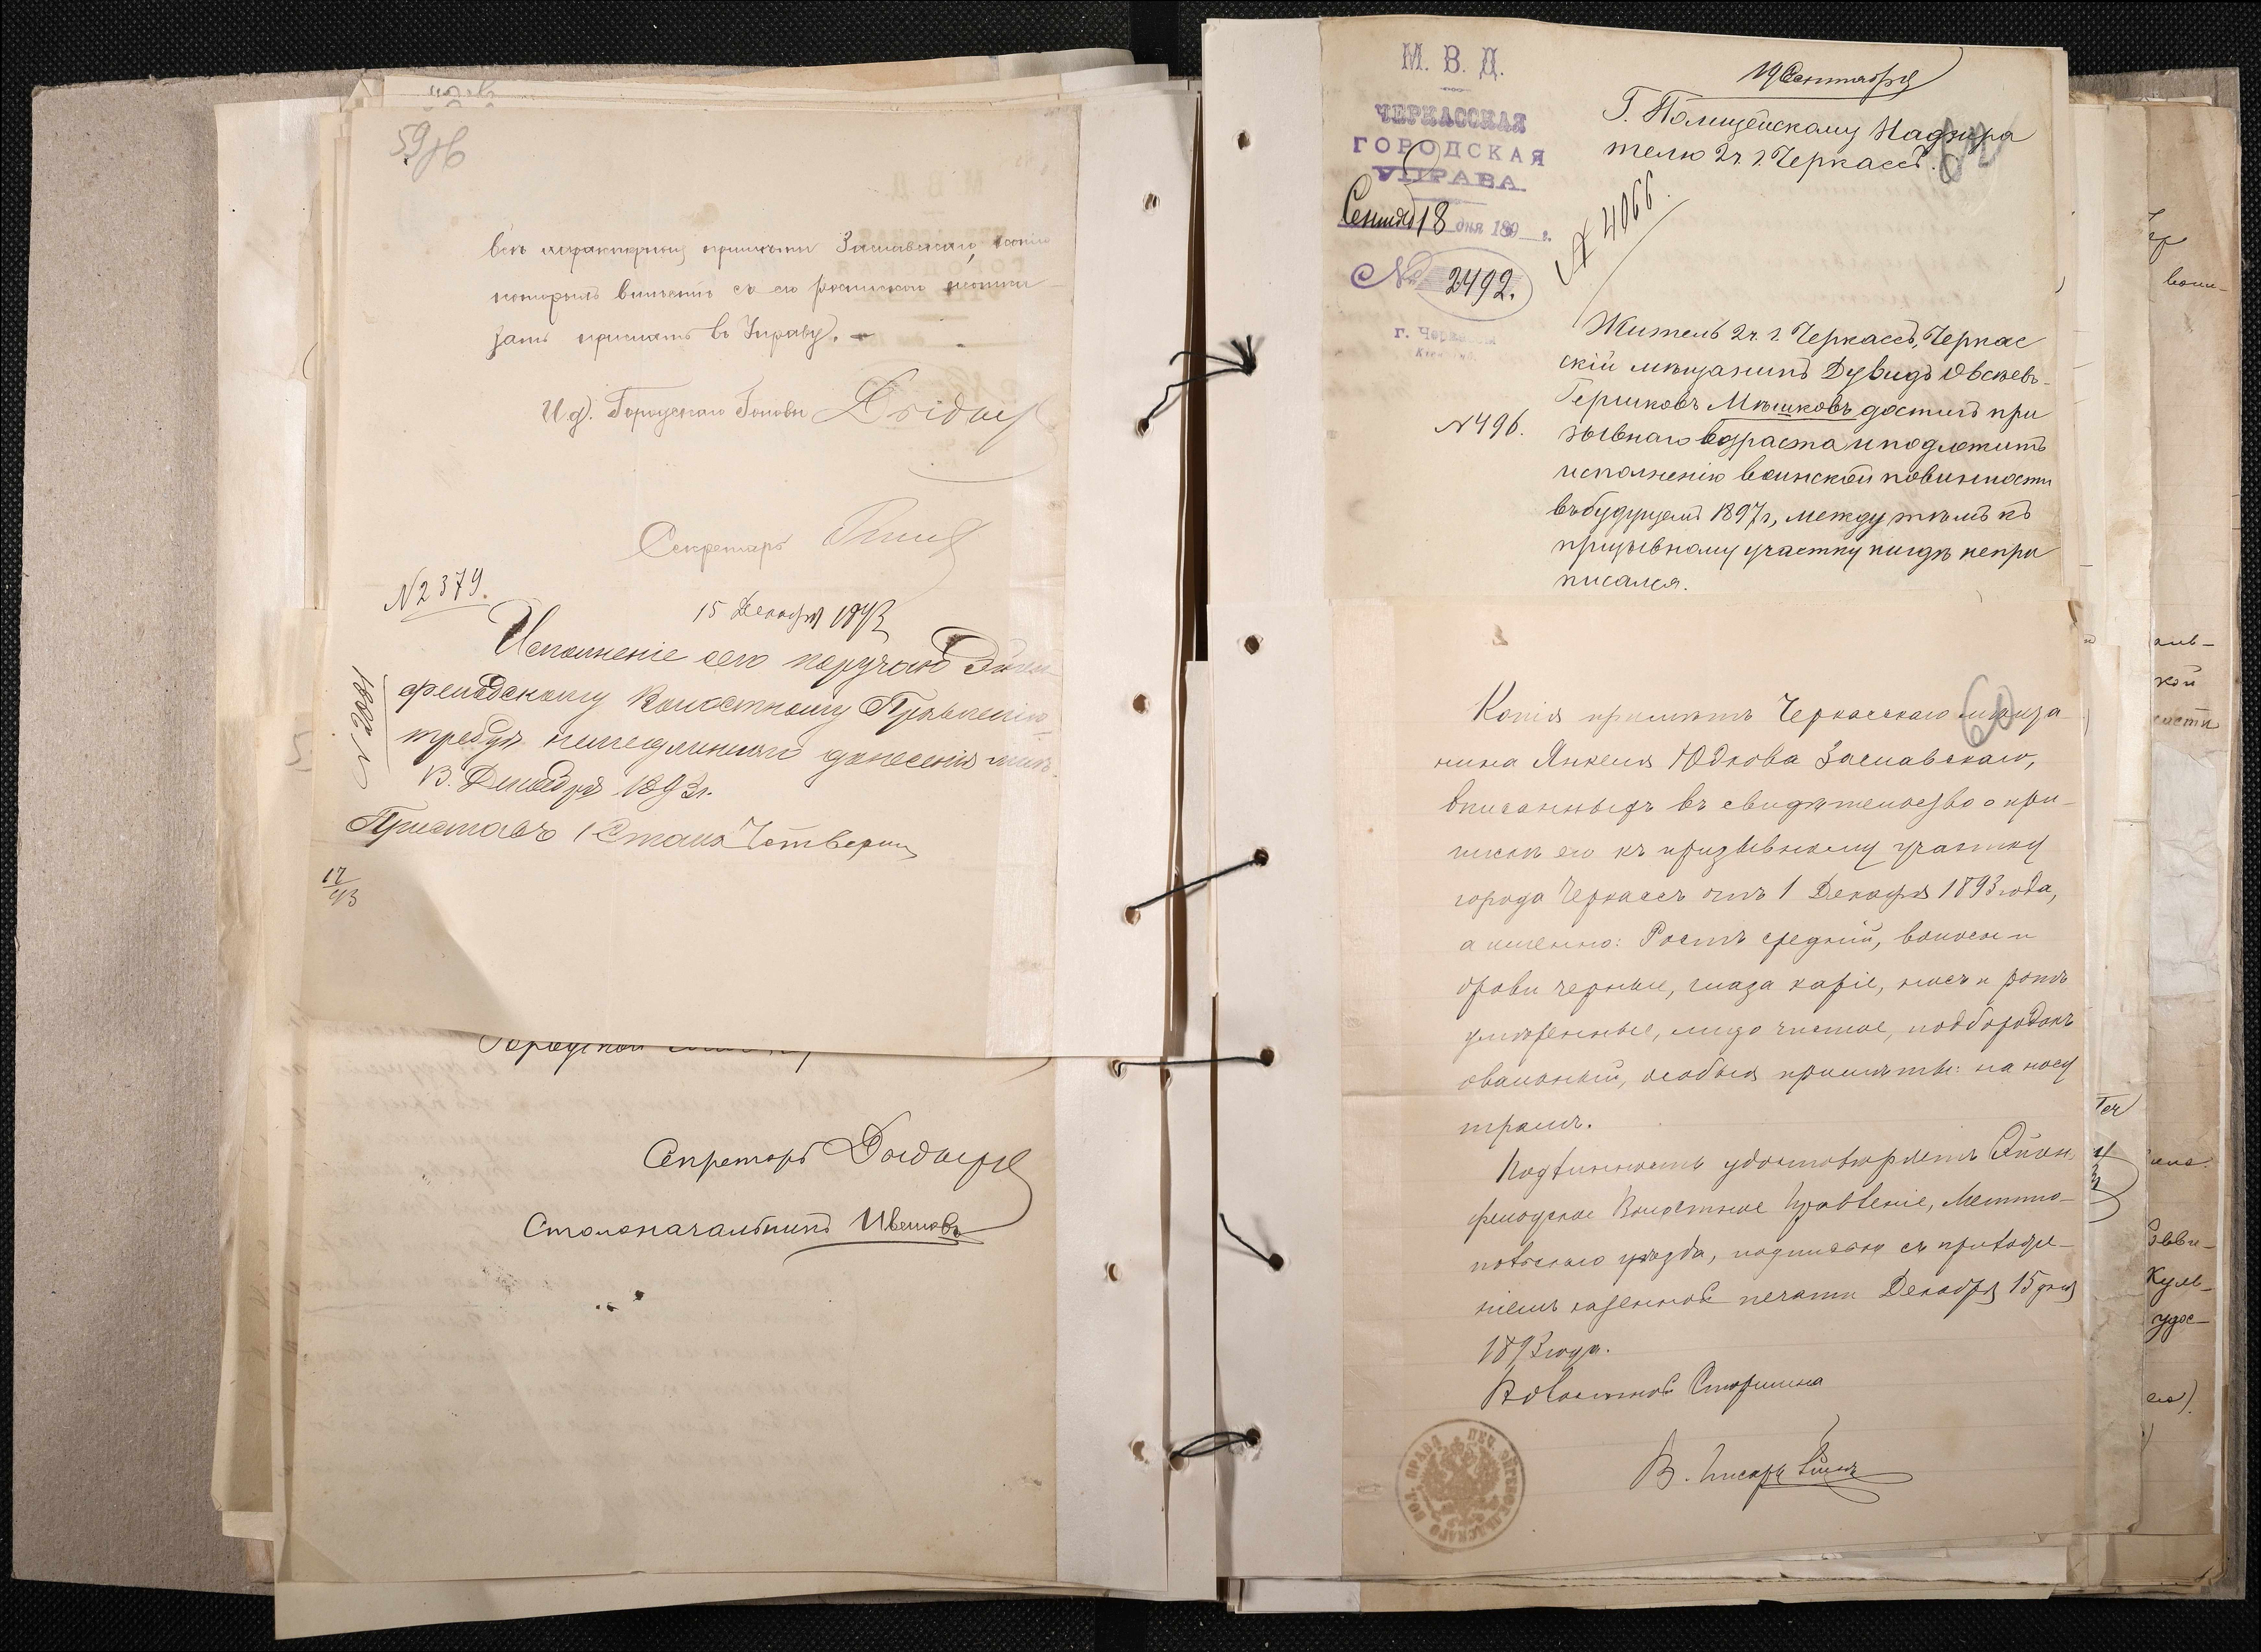 59об
всѣ характерныя примѣты Заславскаго, копію
которыхъ вмѣстѣ съ его роспискою
прислать въ Управу.
И. д. Городскаго Головы
Секретарь
№ 2379.
15 Декабря 1893
Исполненіе сего поручаю Эйген
фельдскому Волостному Правленію
требуя немедленнаго донесенія мнѣ.
13 Декабря 1893 г.
№ 2081
Приставъ 1 Стана
17/93
Секретарь
Столоначальникъ Ивашовъ
М. В. Д.
ЧЕРКАССКАЯ
ГОРОДСКАЯ
УПРАВА.
Сентяб 18 дня 189 г.
№ 2492.
19 Сентября
Г. Полицейскому Надзира
телю 2 ч. г. Черкассъ.
№ 4066.
Житель 2 ч. г. Черкассъ, Черкас
скій мѣщанинъ Дувидъ Овсѣевъ-
Гершковъ Мѣшковъ достигъ при
№ 496.
зывнаго возраста и подлежитъ
исполненію воинской повинности
въ будущемъ 1897 г., между тѣмъ къ
призывному участку нигдѣ непри
писался.
60
Копія примѣтъ Черкасскаго мѣща-
нина Янкеля Юдкова Заславскаго,
вписанныхъ въ свидѣтельство о при-
пискѣ его къ призывному участку
города Черкассъ отъ 1 Декабря 1893 года,
а именно: Ростъ средній, волосы и
брови черные, глаза каріе, носъ и ротъ
умѣренные, лицо чистое, подбородокъ
овальный, особыя примѣты: на носу
шрамъ.
Подлинность удостовѣряетъ Эйген-
фельдское Волостное Правленіе, Мелито-
польскаго уѣзда, подписью съ приложе-
ніемъ казенной печати Декабря 15 дня
1893 года.
Волостной Старшина
В. Писарь
ПЕЧ. ЭЙГЕНФЕЛЬДСКАГО ВОЛ. ПРАВЛ.